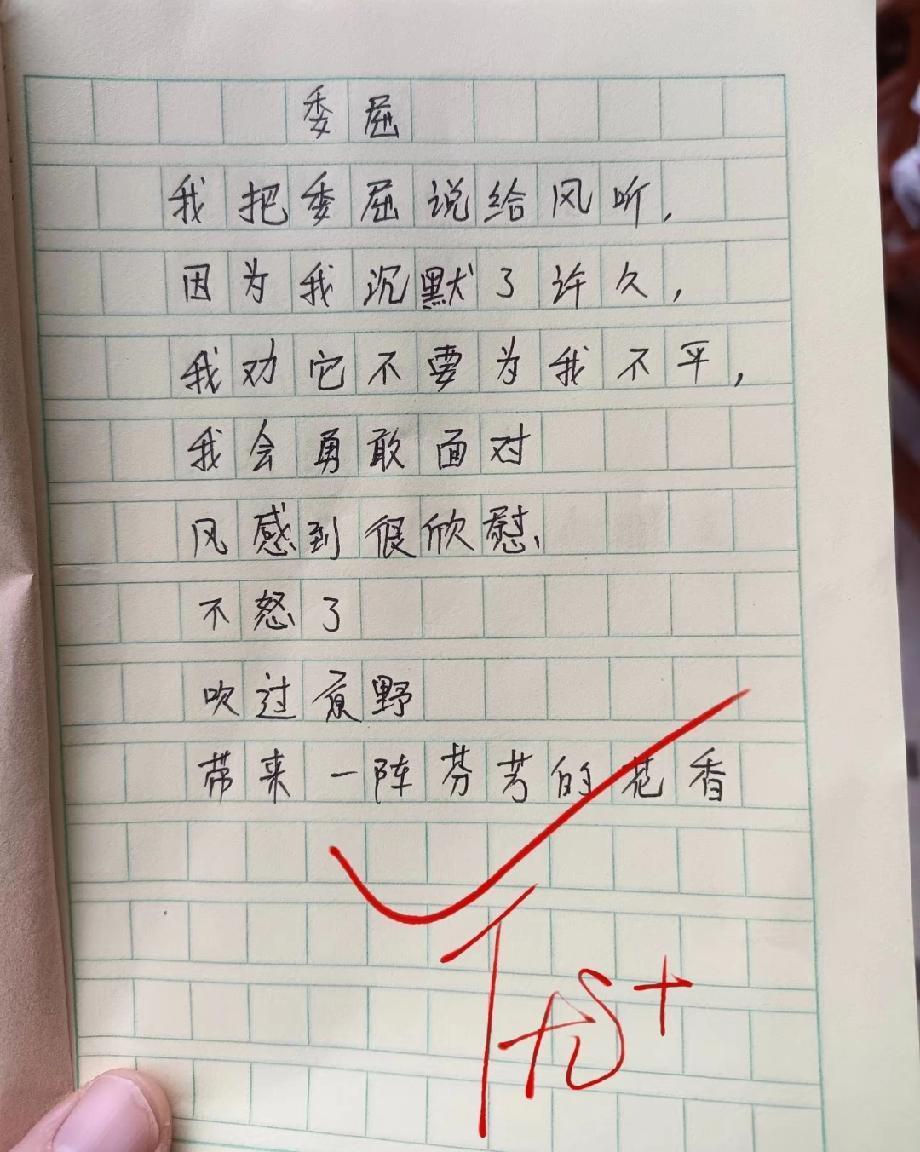 委屈
我把委屈说给风听,
因为我沉默了许久,
我劝它不要为我不平,
我会勇敢面对
风感到很欣慰、
不怒了
吹过原野
带来一阵芬芳的花香
优+